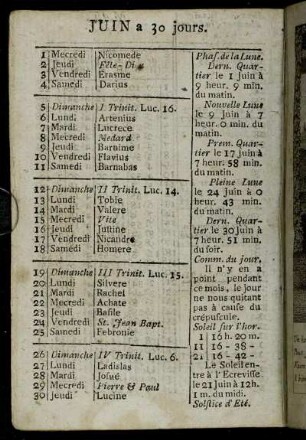 JUIN a 30 jours.
1 Mecredi Nicomede
2 Jeudi Fête-Di
3 Vendredi Erasme
4 Samedi Darius
5 Dimanche I Trinit. Luc. 16.
6 Lundi Artenius
7 Mardi Lucrece
8 Mecredi Medard
9 Jeudi Barnime
10 Vendredi Flavius
11 Samedi Barnabas
12 Dimanche II Trinit. Luc. 14.
13 Lundi Tobie
14 Mardi Valere
15 Mecredi Vite
16 Jeudi Justine
17 Vendredi Nicandre
18 Samedi Homere
19 Dimanche III Trinit. Luc. 15.
20 Lundi Silvere
21 Mardi Rachel
22 Mecredi Achate
23 Jeudi Basile
24 Vendredi St. Jean Bapt.
25 Samedi Febronie
26 Dimanche IV Trinit. Luc. 6.
27 Lundi Ladislas
28 Mardi Josué
29 Mecredi Pierre & Paul
30 Jeudi Lucine
Phas. de la Lune.
Dern. Quar-
tier le 1 juin à
9 h. 9 min.
du matin.
Nouvelle Lune
le 9 juin à 7
heur. 0 min. du
matin.
Prem. Quar-
tier le 17 juin à
7 heur. 58 min.
du matin.
Pleine Lune
le 24 juin à 0
heur. 43 min.
du matin.
Dern. Quar-
tier le 30 juin à
7 heur. 51 min.
du soir.
Comm. du jour.
Il n'y en a
point pendant
ce mois, le jour
ne nous quitant
pas à cause du
crépuscule.
Soleil sur l'hor.
1 16 h. 20 m.
11 16 - 38 -
21 16 - 42 -
Le Soleil en-
tre à l'Ecrevisse
le 21 Juin à 12 h.
1 m. du midi.
Solstice d'Eté.